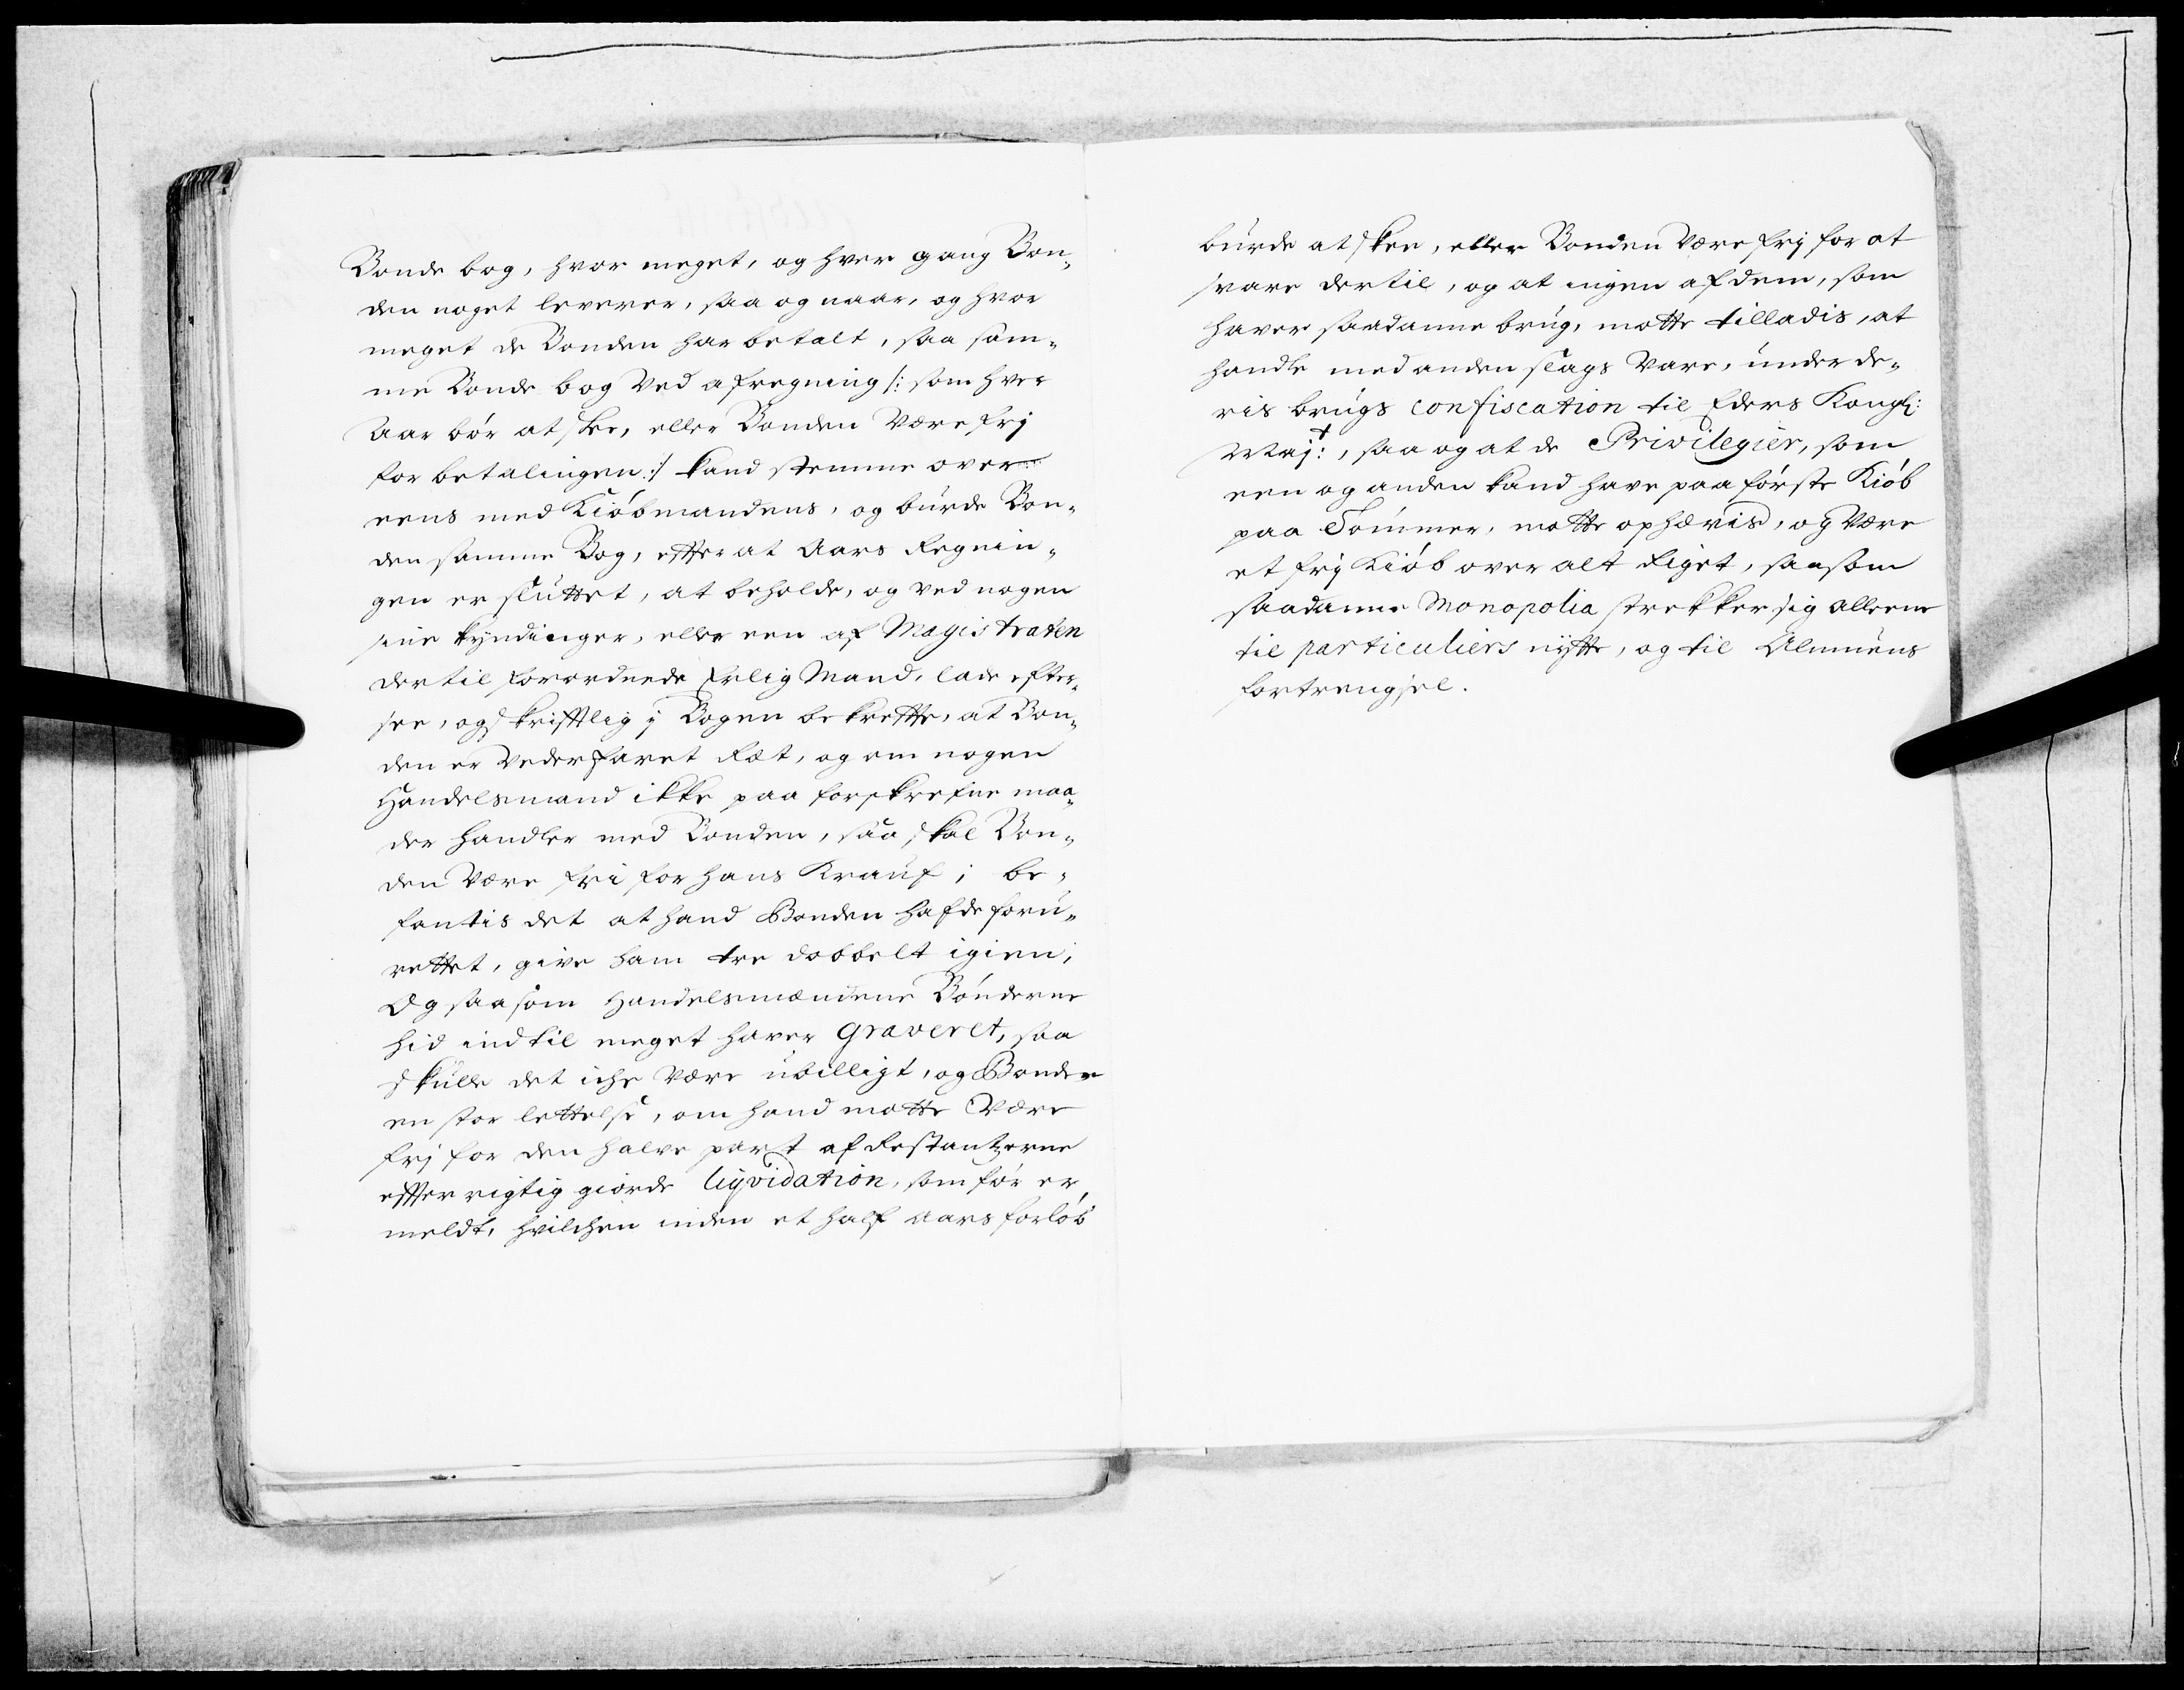 Bonde bog, hvor meget, og hver gang Bon„
den noget leverer, saa og naar, og hvor
meget de Bonden har betalt, saa sam„
me Bonde bog ved afregning /: som hver
Aar bór at skee, eller Bonden være frj
for betalingen :/ kand stemme over„
eens med Kiöbmandens, og burde Bon„
den samme Bog, effter at Aars Regnin„
gen er sluttet, at beholde, og ved nogen
sine kyndinger, eller een af Magistraten
dertil forordnede Erlig Mand, lade efter„
see, og skrifftlig j Bogen bekreffte, at Bon„
den er vederfaret Ræt, og om nogen
Handelsmand ikke paa forskrefne maa„
der handler med Bonden, saa skal Bon„
den være fri for hans Krauf; be„
fantis det at hand Bonden hafde foru„
rettet, give ham tre dobbelt igien;
Og saasom Handelsmændene Bónderne
hid indtil meget haver graveret, saa
skulle det iche være ubilligt, og Bonden
en stor lettelse, om hand motte være
frj for den halve part af Restantzerne
effter rigtig giorde liqvidation, som fór er
meldt, hvilchen inden et half Aars forlób
burde at skee, eller Bonden være frj for at
svare dertil, og at ingen af dem, som
haver saadanne brug, motte tilladis, at
handle med anden slags vare, under de„
ris brugs confiscation til Eders Kongl:
Majt:, saa og at de Privilegier, som
een og anden kand have paa fórste Kiób
paa Tommer, motte ophævis, og være
et frj Kiób over alt Riget, saasom
saadanne Monopolia strekker sig alleene
til particuliers nytte, og til Almuens
fortrengsel.